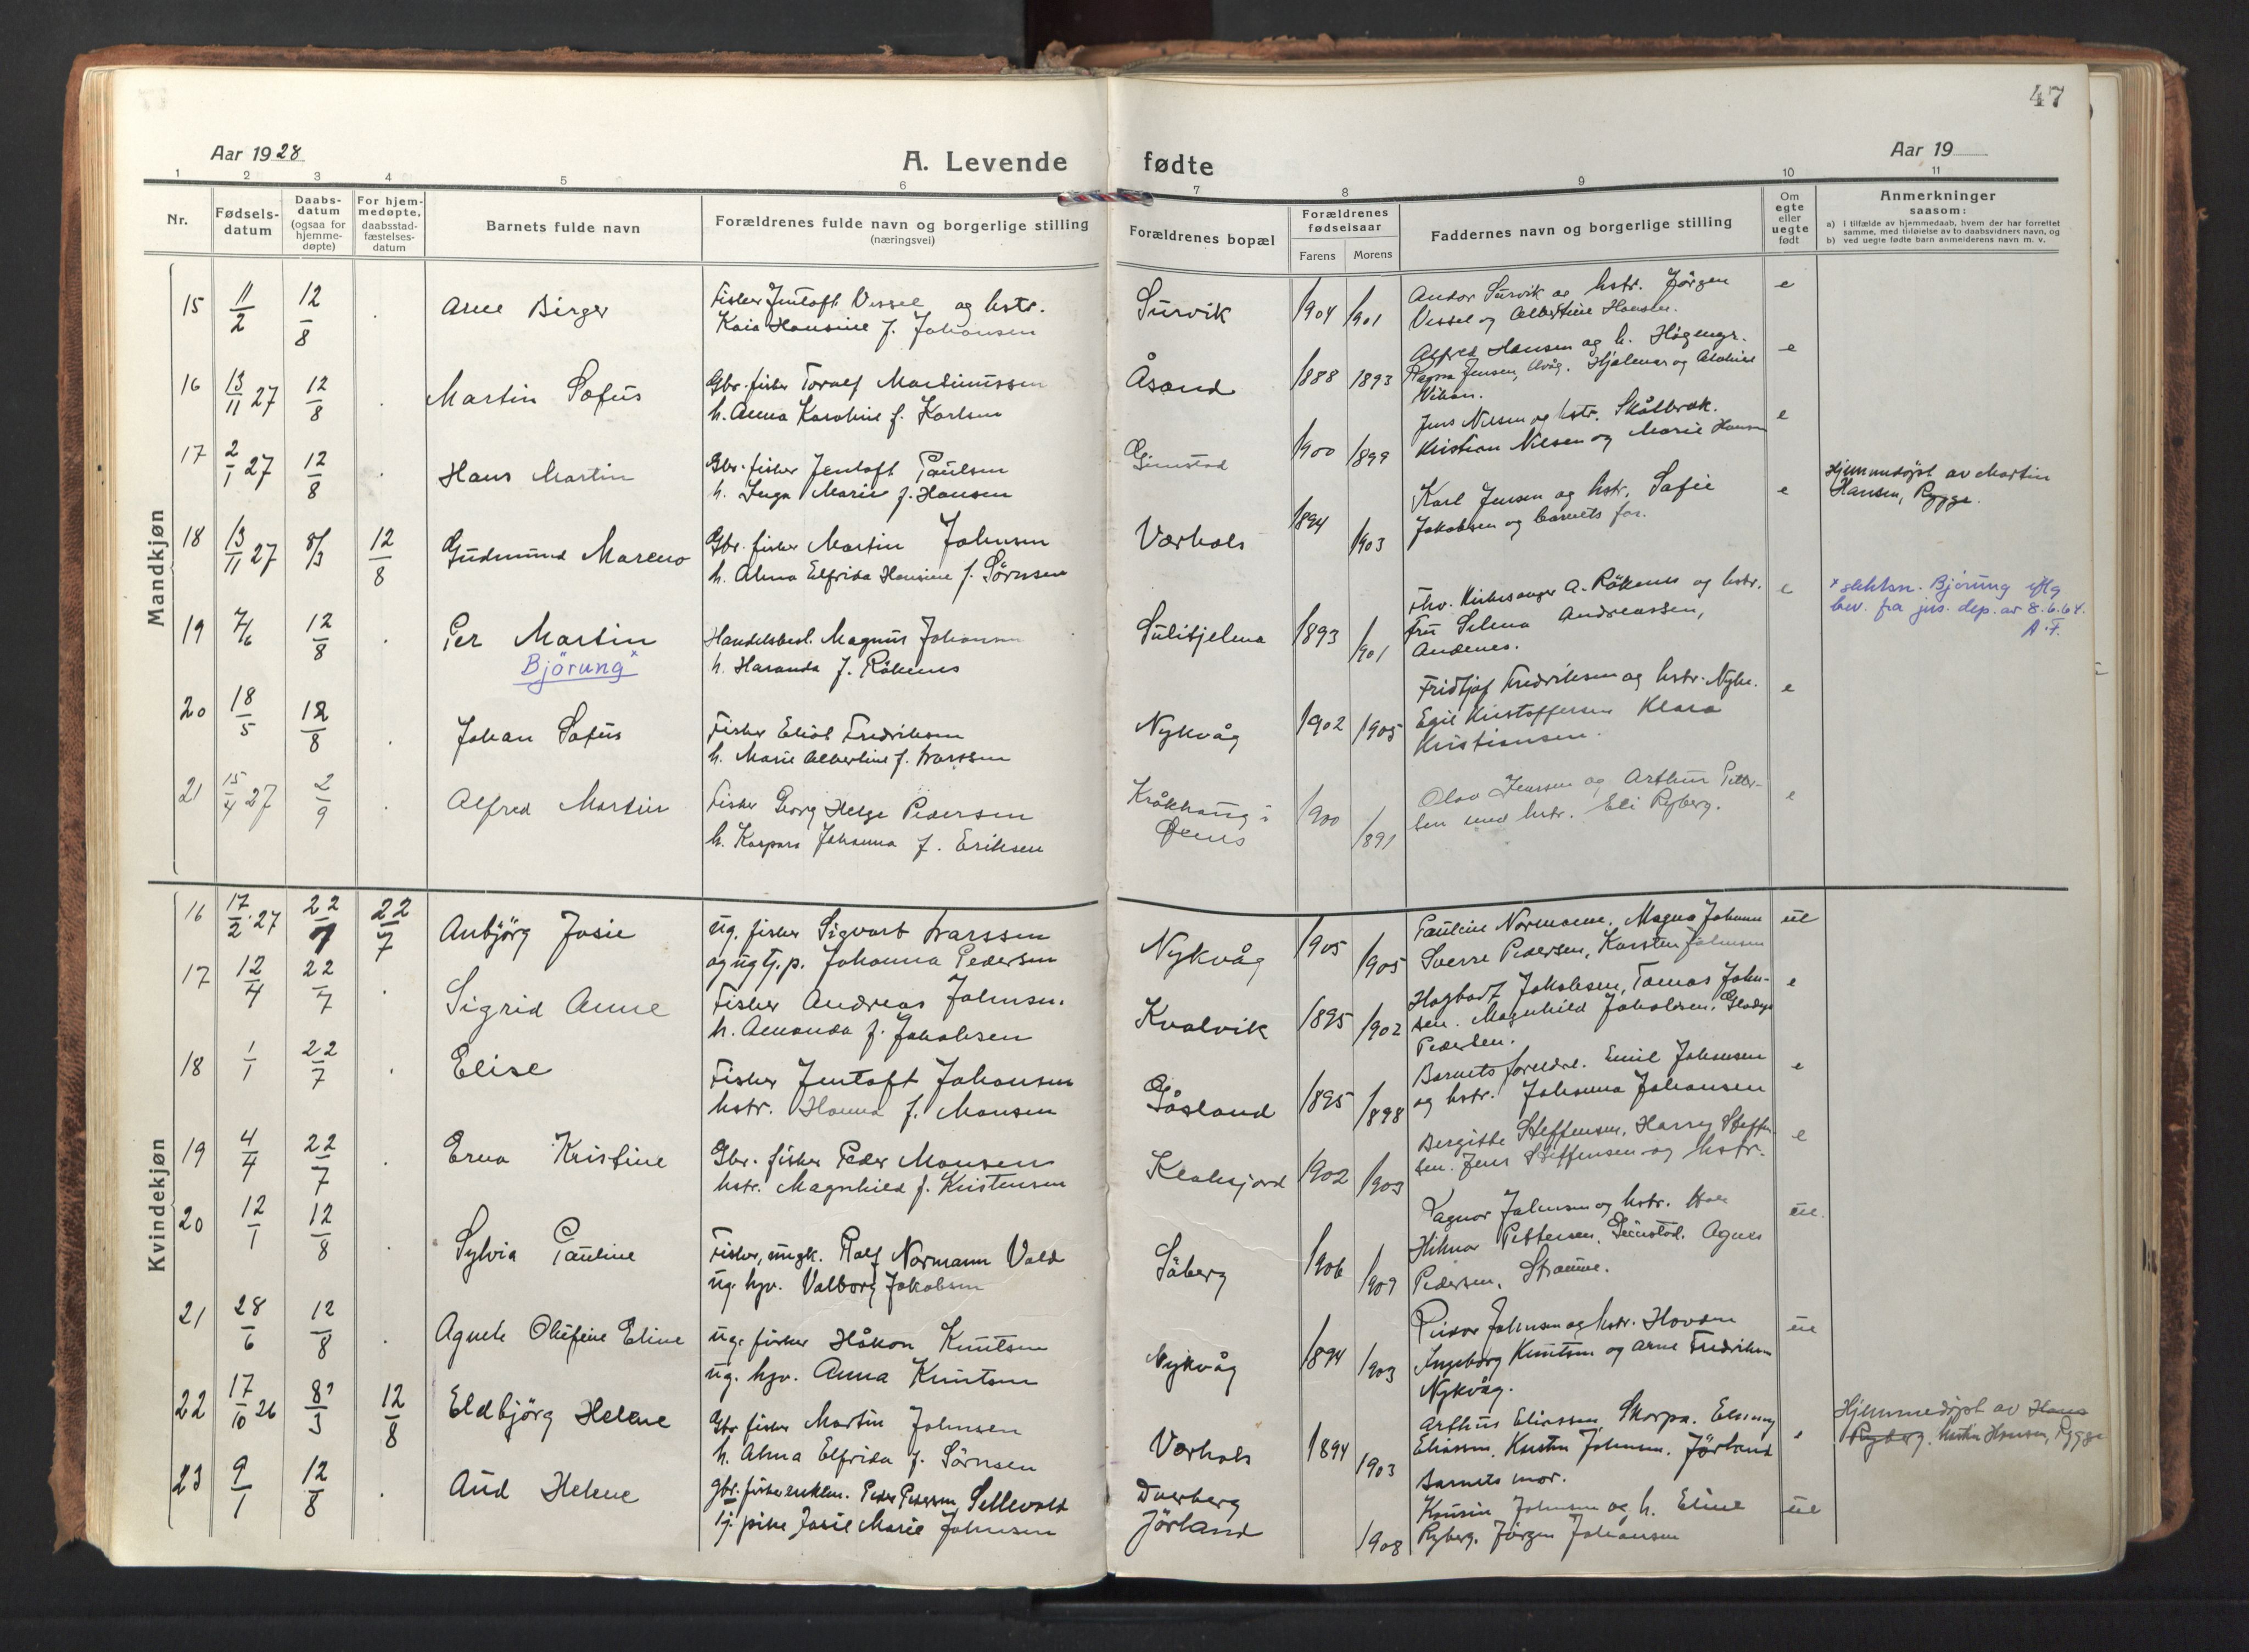 47
Aar 1928
A. Levende fødte
Aar 19
1 2 3 4 5 6 7 8 9 10 11
Nr.
Fødsels-
datum
Daabs-
datum
(ogsaa for
hjemme-
døpte)
For hjem-
medøpte,
daabsstad-
fæstelses-
datum
Barnets fulde navn
Forældrenes fulde navn og borgerlige stilling
(næringsvei)
Forældrenes bopæl
Forældrenes
fødselsaar
Farens Morens
Faddernes navn og borgerlige stilling
Om
egte
eller
uegte
født
Anmerkninger
saasom:
a) I tilfælde av hjemmedaab, hvem der har forrettet
samme, med tilføielse av to daabsvidners navn, og
b) ved uegte fødte barn anmelderens navn m. v.
Mandkjøn
15 11/2 12/8 Arne Birger
Fisker Jentoft Vessel og hstr.
Kaia Hansine f. Johansen
Survik 1904 1901
Andor Survik og hstr. Jørgen
Vessel og Albertine Hansen.
e
16 13/11 27 12/8 Martin Sofus
Gbr. fisker Toralf Martinussen
h. Anna Karoline f. Karlsen
Åsand 1888 1893
Alfred Hansen og h. Høgengr.
Ragna Jensen, Hjalmar og
e
17 2/1 27 12/8 Hans Martin
Gbr. fisker Jentoft Paulsen
h. Inga Marie f. Hansen
Grimstad 1900 1899
Jens Nilsen og hstr. Skålbrek.
Kristian Nilsen og Marie Hansen
e
18 13/11 27 8/3 12/8 Gudmund Mareno
Gbr. fisker Martin Johnsen
h. Alma Elfrida Hansine f. Sörnsen
Værhals 1894 1903
Karl Jensen og hstr. Sofie
Jakobsen og barnets far.
e
Hjemmedøpt av Martin
Hansen, Rygge.
19 7/6 12/8 Per Martin
Björung x
Handelsbest. Magnus Johansen
h. Haranda f. Röknes
Sulitjelma 1893 1901
Fhv. Kirkesanger A. Röknes og hstr.
Fru Selma Andreassen,
Andenes.
e
x slektsn. Björung iflg
bev. fra jus. dep. av 8.6.64.
A.F.
20 18/5 12/8 Johan Sofus
Fisker Eliot Fredriksen
h. Marie Albertine f. Larssen
Nykvåg 1902 1905
Fridtjof Fredriksen og hstr. Nykv.
Egil Kristoffersen Klara
Kristiansen.
e
21 15/4 27 2/9 Alfred Martin
Fisker Georg Helge Pedersen
h. Kaspara Johanna f. Eriksen
Kråkhaug i
Øknes 1900 1891
Olav Jensen og Arthur Petter-
sen med hstr. Eli Ryberg.
e
Kvindekjøn
16 17/2 27 22/7 22/7 Anbjörg Josie
Ug. fisker Sigvart Larssen
og ug tj. p. Johanna Pedersen
Nykvåg 1905 1905
Pauline Normann, Magna Johansen
Sverre Pedersen, Karsten Johnsen
ue
17 12/4 22/7 Sigrid Anne
Fisker Andreas Johnsen.
h. Amanda f. Jakobsen
Kvalvik 1895 1902
Hagbart Jakobsen, Tomas John-
sen. Magnhild Jakobsen, Gladys
Pedersen.
e
18 1/1 22/7 Elise
Fisker Jentoft Johansen
hstr. Hanna f. Monsen
Gåsland 1895 1898
Barnets foreldre. Emil Johansen
og hstr. Johanna Johansen
e
19 4/4 22/7 Erna Kristine
Gbr. fisker Peder Monsen
hstr. Magnhild f. Kristensen
Klaksjord 1902 1903
Bergitte Steffensen, Harry Steffen-
sen. Jens Steffensen og hstr.
e
20 12/1 12/8 Sylvia Pauline
Fisker, ungk. Rolf Normann Vold
ug. hjv. Valborg Jakobsen
Såberg 1906 1909
Ragnar Johnsen og hstr.
Hilmar Pettersen, Grimstad. Agnes
Pedersen, Straume.
ue.
21 28/6 12/8 Agnete Olufine Eline
Ug. fisker Håkon Knutsen
ug. hjv. Anna Knutsen
Nykvåg 1894 1903
Peder Johnsen og hstr. Hovden
Ingeborg Knutsen og Arne Fredriksen
Nykvåg.
ue
22 17/10 26 8/3 12/8 Eldbjörg Helene
Gbr fisker Martin Johnsen
h. Alma Elfrida f. Sörnsen
Værhals 1894 1903
Arthur Eliassen, Skorpa.
Eliassen, Kirsten Johnsen. Jörland
Barnets mor.
Hjemmedøpt av Hans
Ryberg. Martin Hansen, Rygge
23 9/1 12/8 Aud Helene
Gbr. fisker enkem. Peder Pedersen Sellevold
tj. pike Josie Marie Johnsen
Dverberg
Jörland 1908
Johnsen og h. Eline
Ryberg. Jörgen Johansen
ue